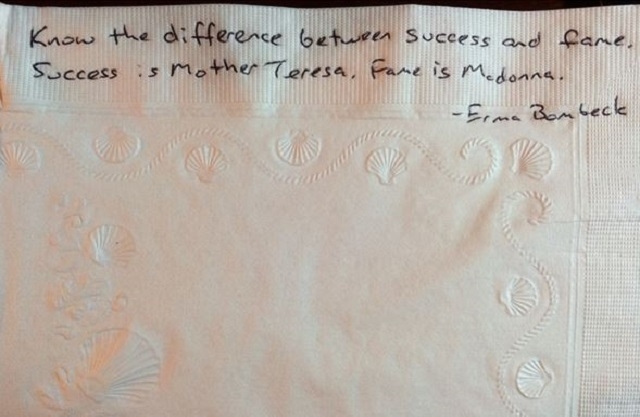 Know the difference between success and fame.
Success is Mother Teresa. Fame is Madonna.
-Erma Bombeck